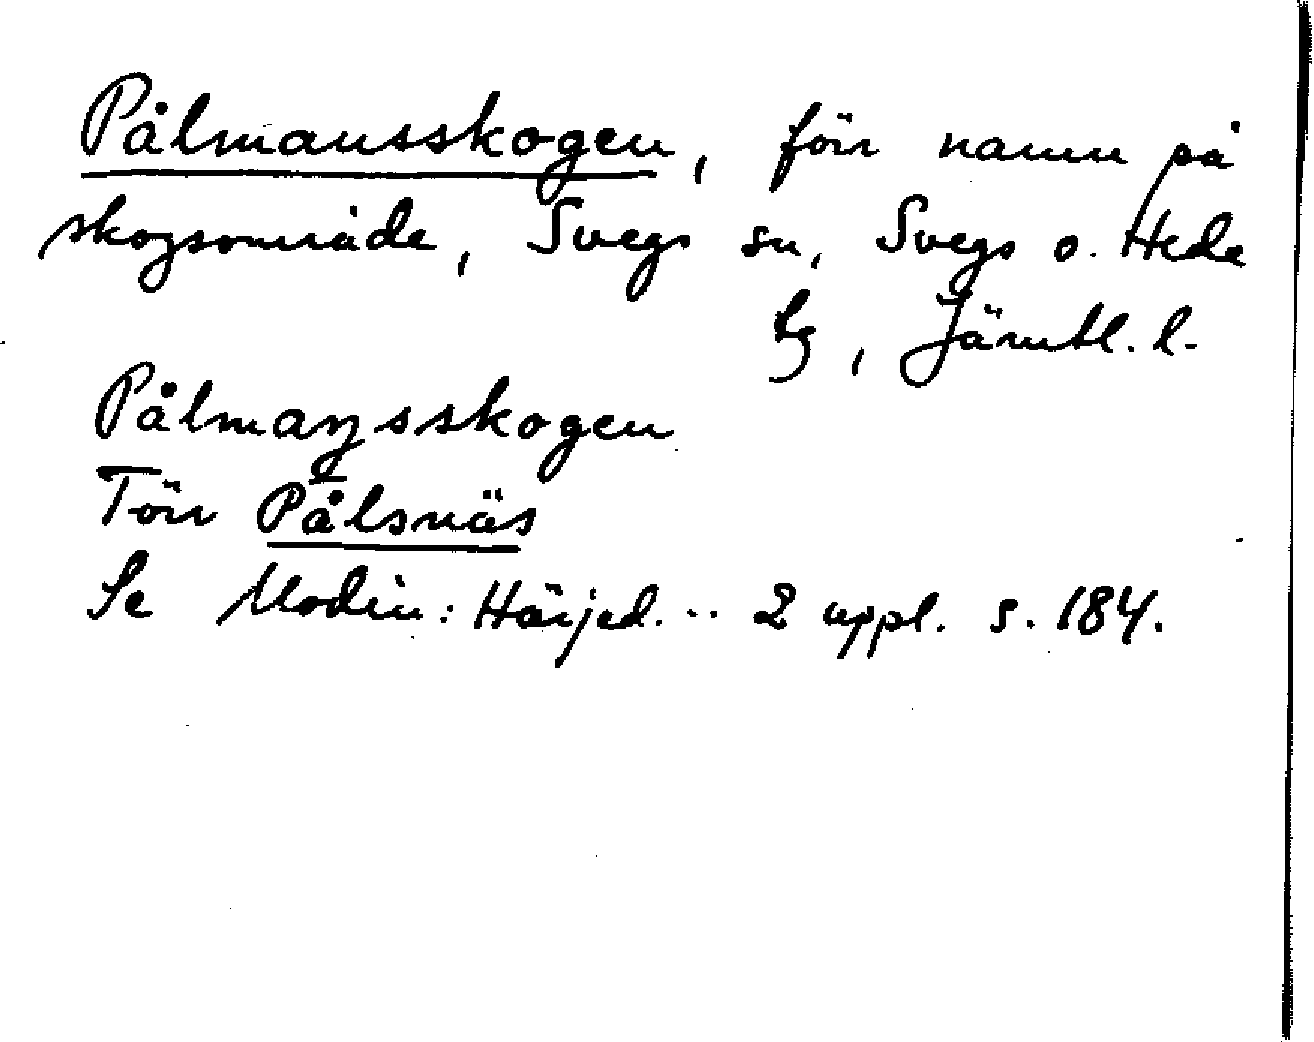 Pålmansskogen, förr namn på
skogsområde, Svegs sn, Svegs o. Hede
tg, Jämtl. l.
Pålmaŋsskogen
Förr Pålsnäs
Se Modin: Härjed. .. 2 uppl. s. 184.